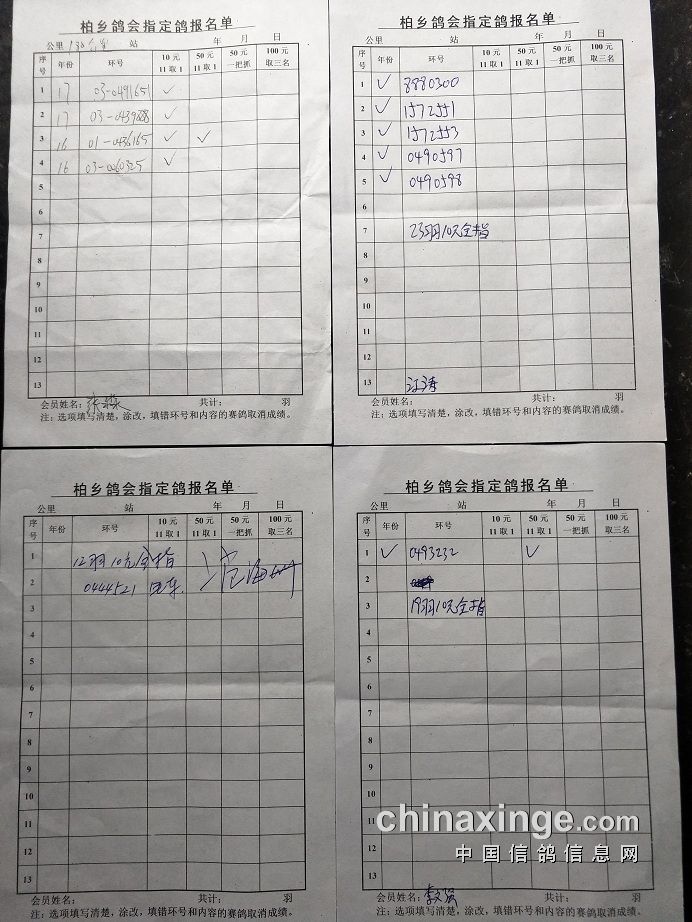 柏乡鸽会指定鸽报名单
公里 站 年 月 日
序号 年份 环号 10元 11取1 50元 11取1 50元 一把抓 100元 取三名
1 17 03-0491651 ✓
2 17 ✓
3 16 01-0436165 ✓ ✓
4 16 03-0060325 ✓
5
6
7
8
9
10
11
12
13
会员姓名： 共计： 羽
注：选项填写清楚，涂改，填错环号和内容的赛鸽取消成绩。
柏乡鸽会指定鸽报名单
公里 站 年 月 日
序号 年份 环号 10元 11取1 50元 11取1 50元 一把抓 100元 取三名
1 ✓ 8880300
2 ✓ 1572551
3 ✓ 1572553
4 ✓ 0490597
5 ✓ 0490598
6
7 23羽10元全指
8
9
10
11
12
13 江涛
会员姓名： 共计： 羽
注：选项填写清楚，涂改，填错环号和内容的赛鸽取消成绩。
柏乡鸽会指定鸽报名单
公里 站 年 月 日
序号 年份 环号 10元 11取1 50元 11取1 50元 一把抓 100元 取三名
1 12羽10元全指
2 0444521
3
4
5
6
7
8
9
10
11
12
13
会员姓名： 共计： 羽
注：选项填写清楚，涂改，填错环号和内容的赛鸽取消成绩。
柏乡鸽会指定鸽报名单
公里 站 年 月 日
序号 年份 环号 10元 11取1 50元 11取1 50元 一把抓 100元 取三名
1 ✓ 0493232 ✓
2
3 19羽10元全指
4
5
6
7
8
9
10
11
12
13
会员姓名： 共计： 羽
注：选项填写清楚，涂改，填错环号和内容的赛鸽取消成绩。
chinaxinge.com
中国信鸽信息网